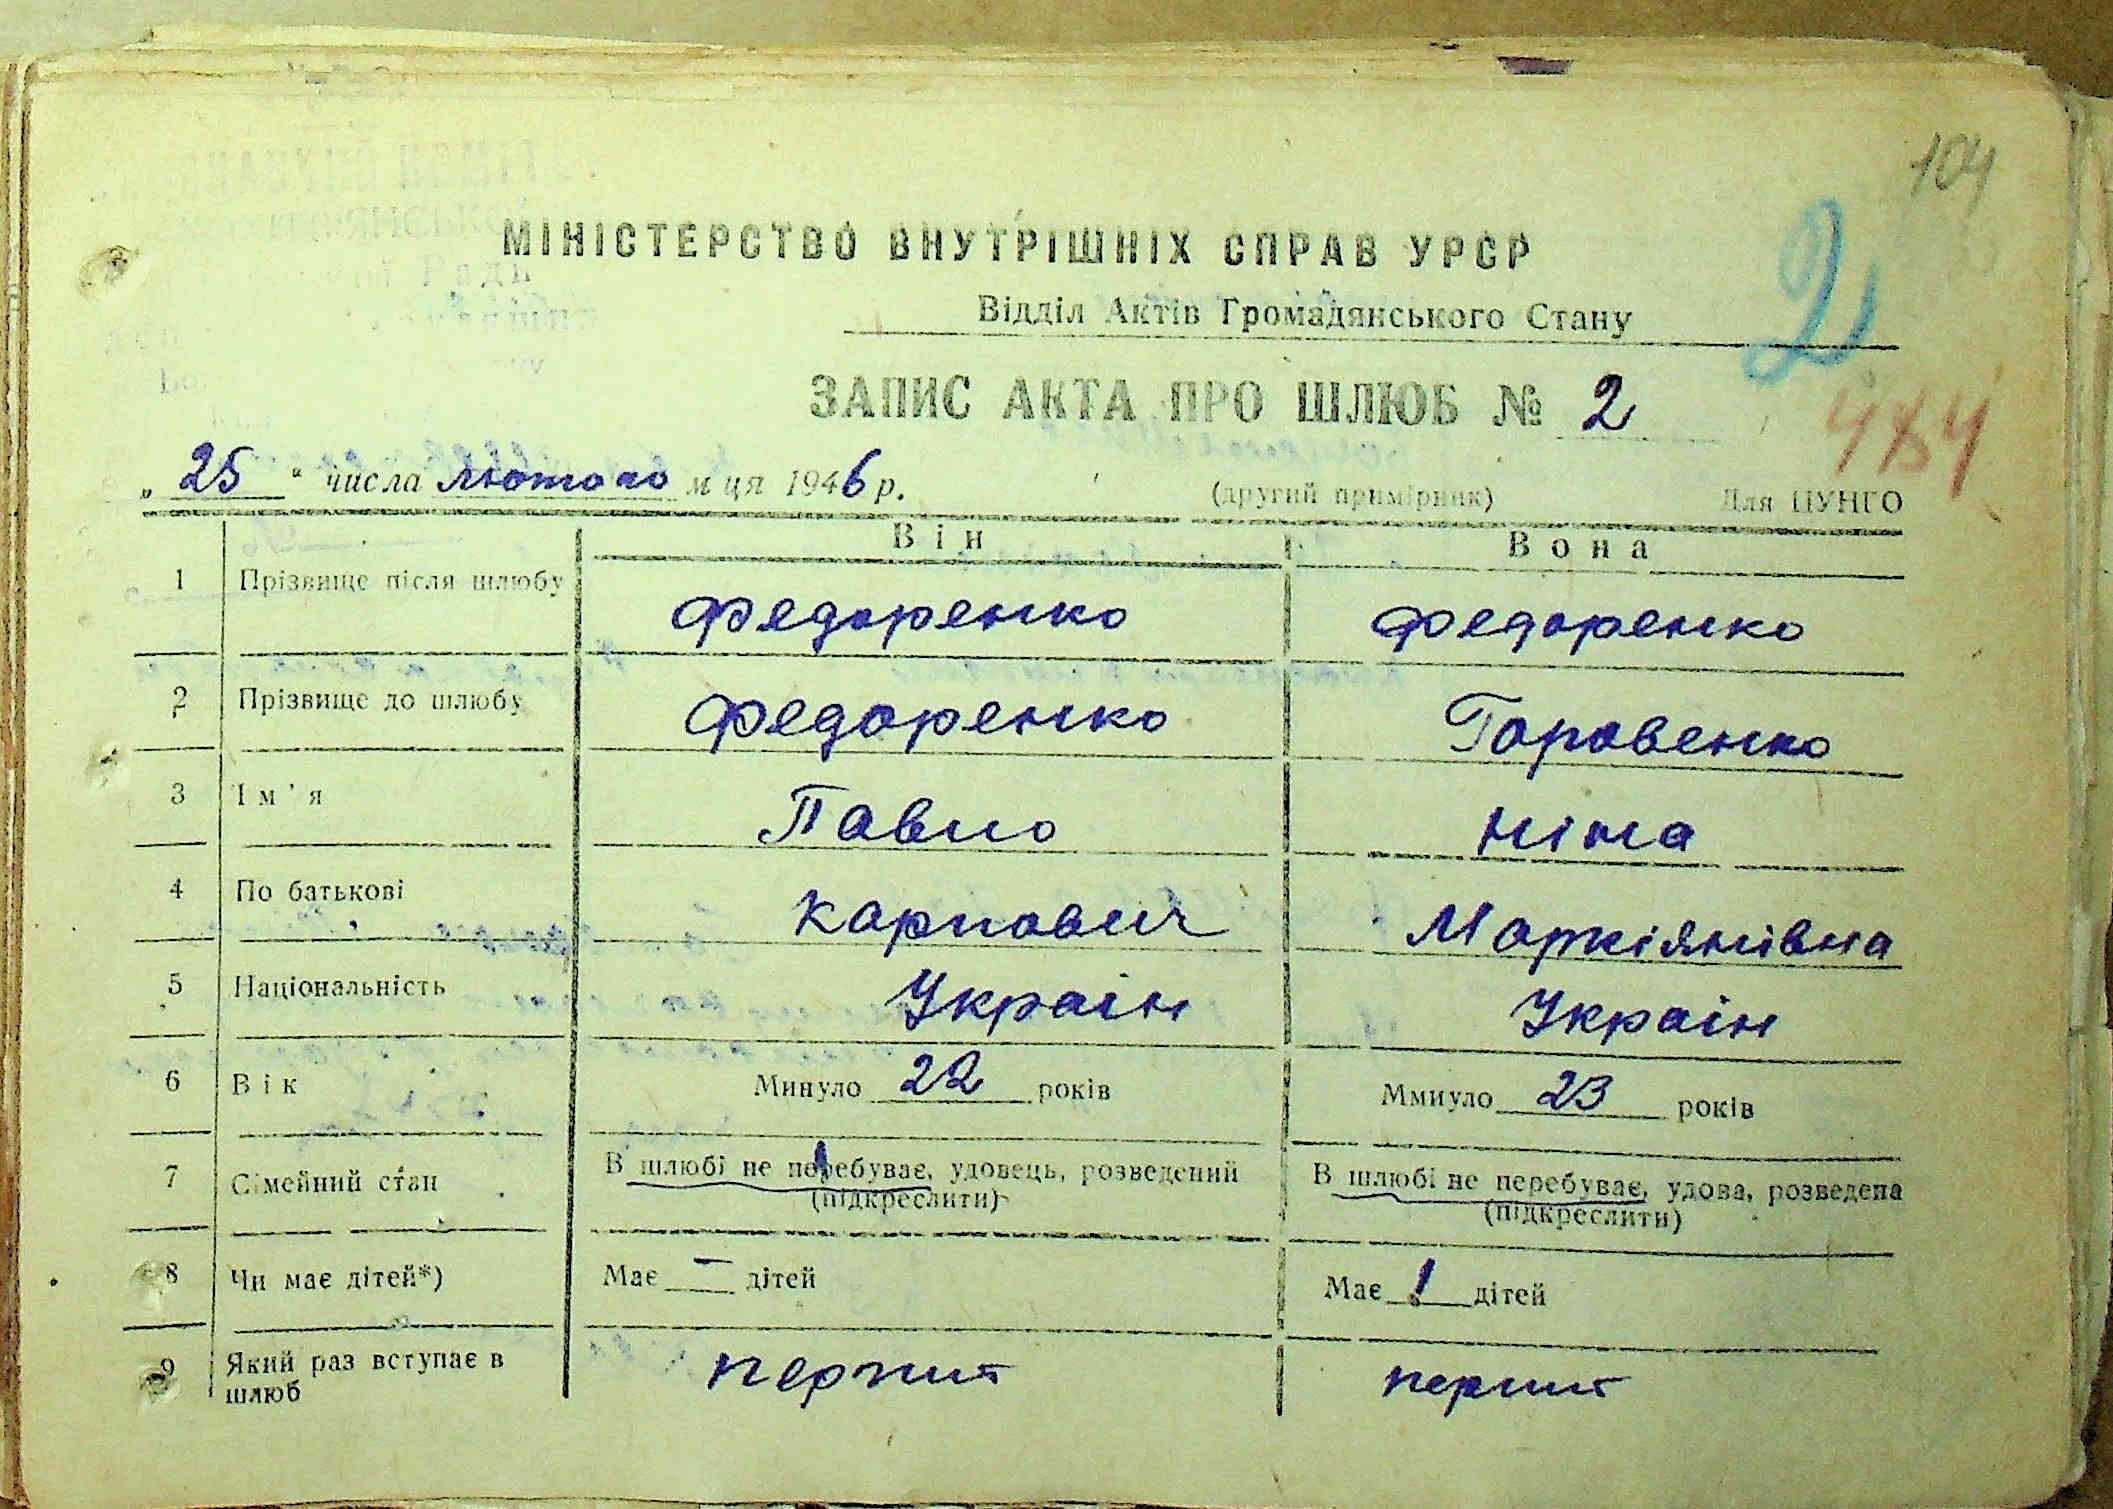 104
МІНІСТЕРСТВО ВНУТРІШНІХ СПРАВ УРСР
2
Відділ Актів Громадянського Стану
ЗАПИС АКТА ПРО ШЛЮБ № 2
„ 25 “ числа лютого м ця 1946 р.
(другий примірник) Для ЦУНГО
Він Вона
1 Прізвище після шлюбу Федоренко Федоренко
2 Прізвище до шлюбу Федоренко Горовенко
3 Ім'я Павло Ніна
4 По батькові Карпович Маркіянівна
5 Національність Україн Україн
6 Вік Минуло 22 років Ммнуло 23 років
7 Сімейний стан В шлюбі не перебуває, удовець, розведений В шлюбі не перебуває, удова, розведена
(підкреслити) (підкреслити)
8 Чи має дітей*) Має — дітей Має 1 дітей
9 Який раз вступає в шлюб перший перший